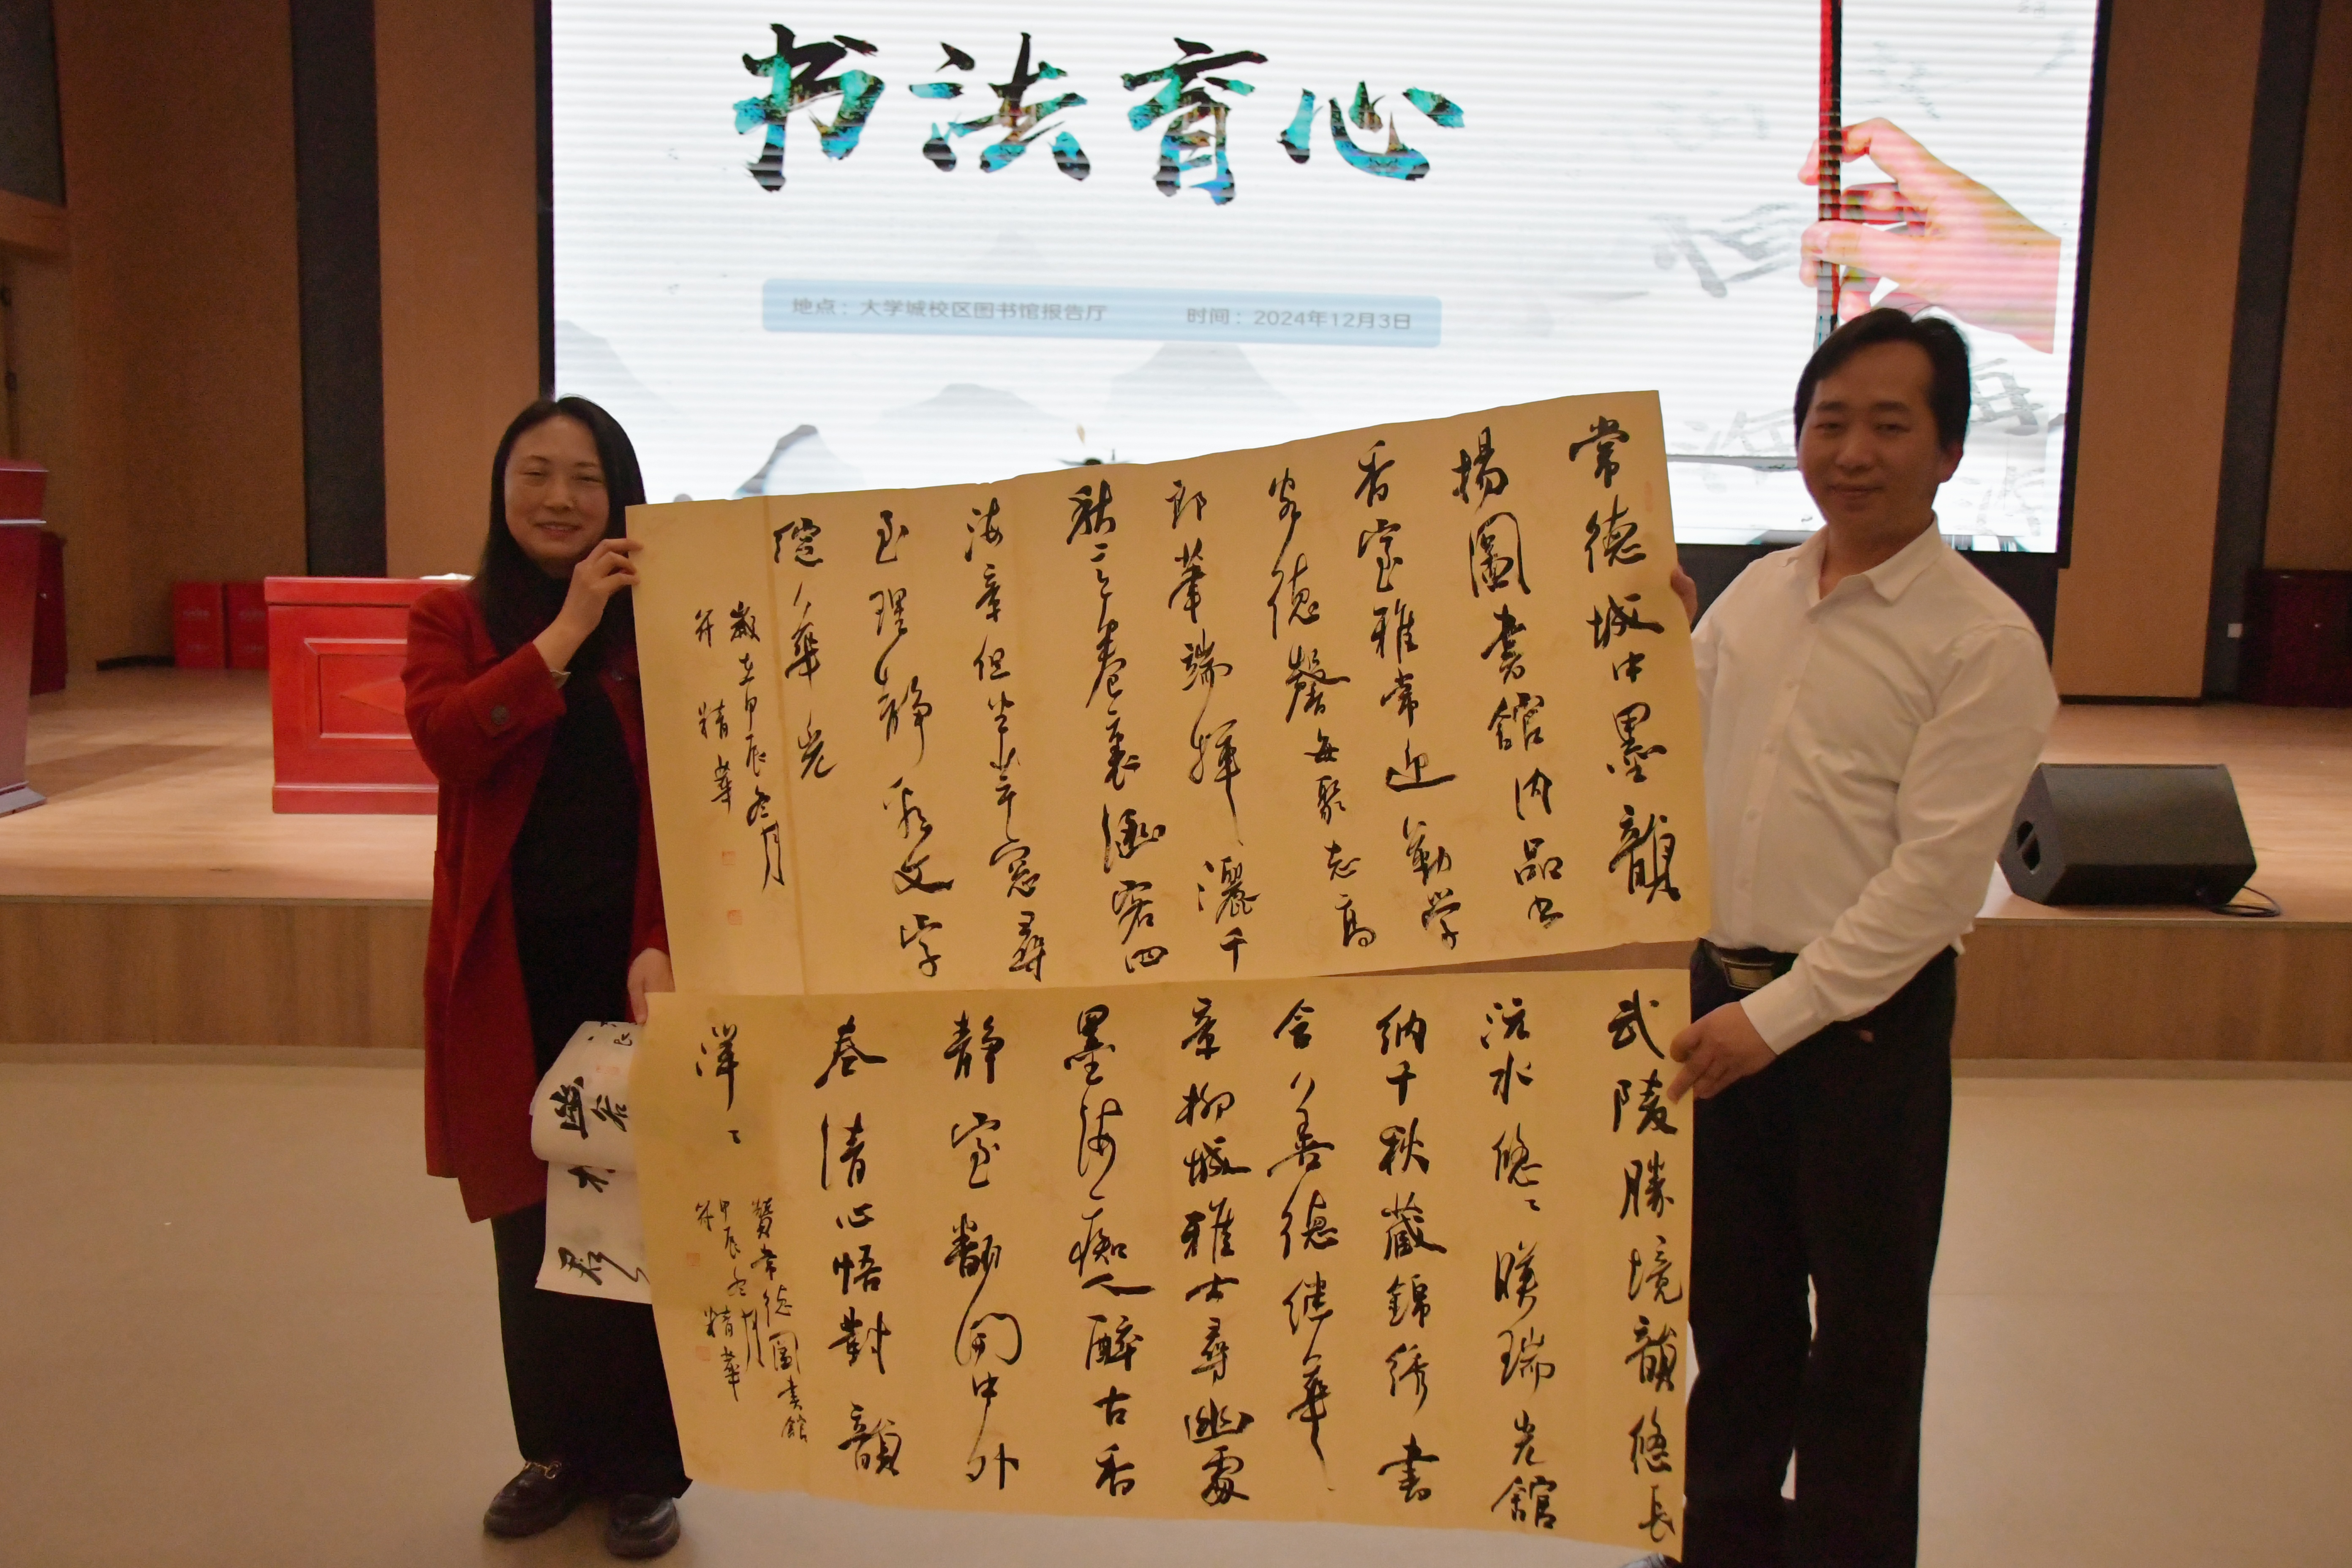 书法育心
地点：大学城校区图书馆报告厅
时间：2024年12月3日
常德城中墨韻
揚圖書館内品书
香室雅常迎勤学
客德馨每聚志高
郎華端揮灑千
秋三卷裏涵容四
海章但坐芸窓尋
至理静承文字
綻華光
歲在甲辰冬月
并
精華
武陵勝境韻悠长
沅水悠〻映瑞光館
纳千秋藏錦绣書
含善德继華
章柳城雅士尋幽處
墨海痴人醉古香
静室翻開中外
卷清心悟對韻
洋〻
贊常德圖書館
甲辰冬月
并
精華